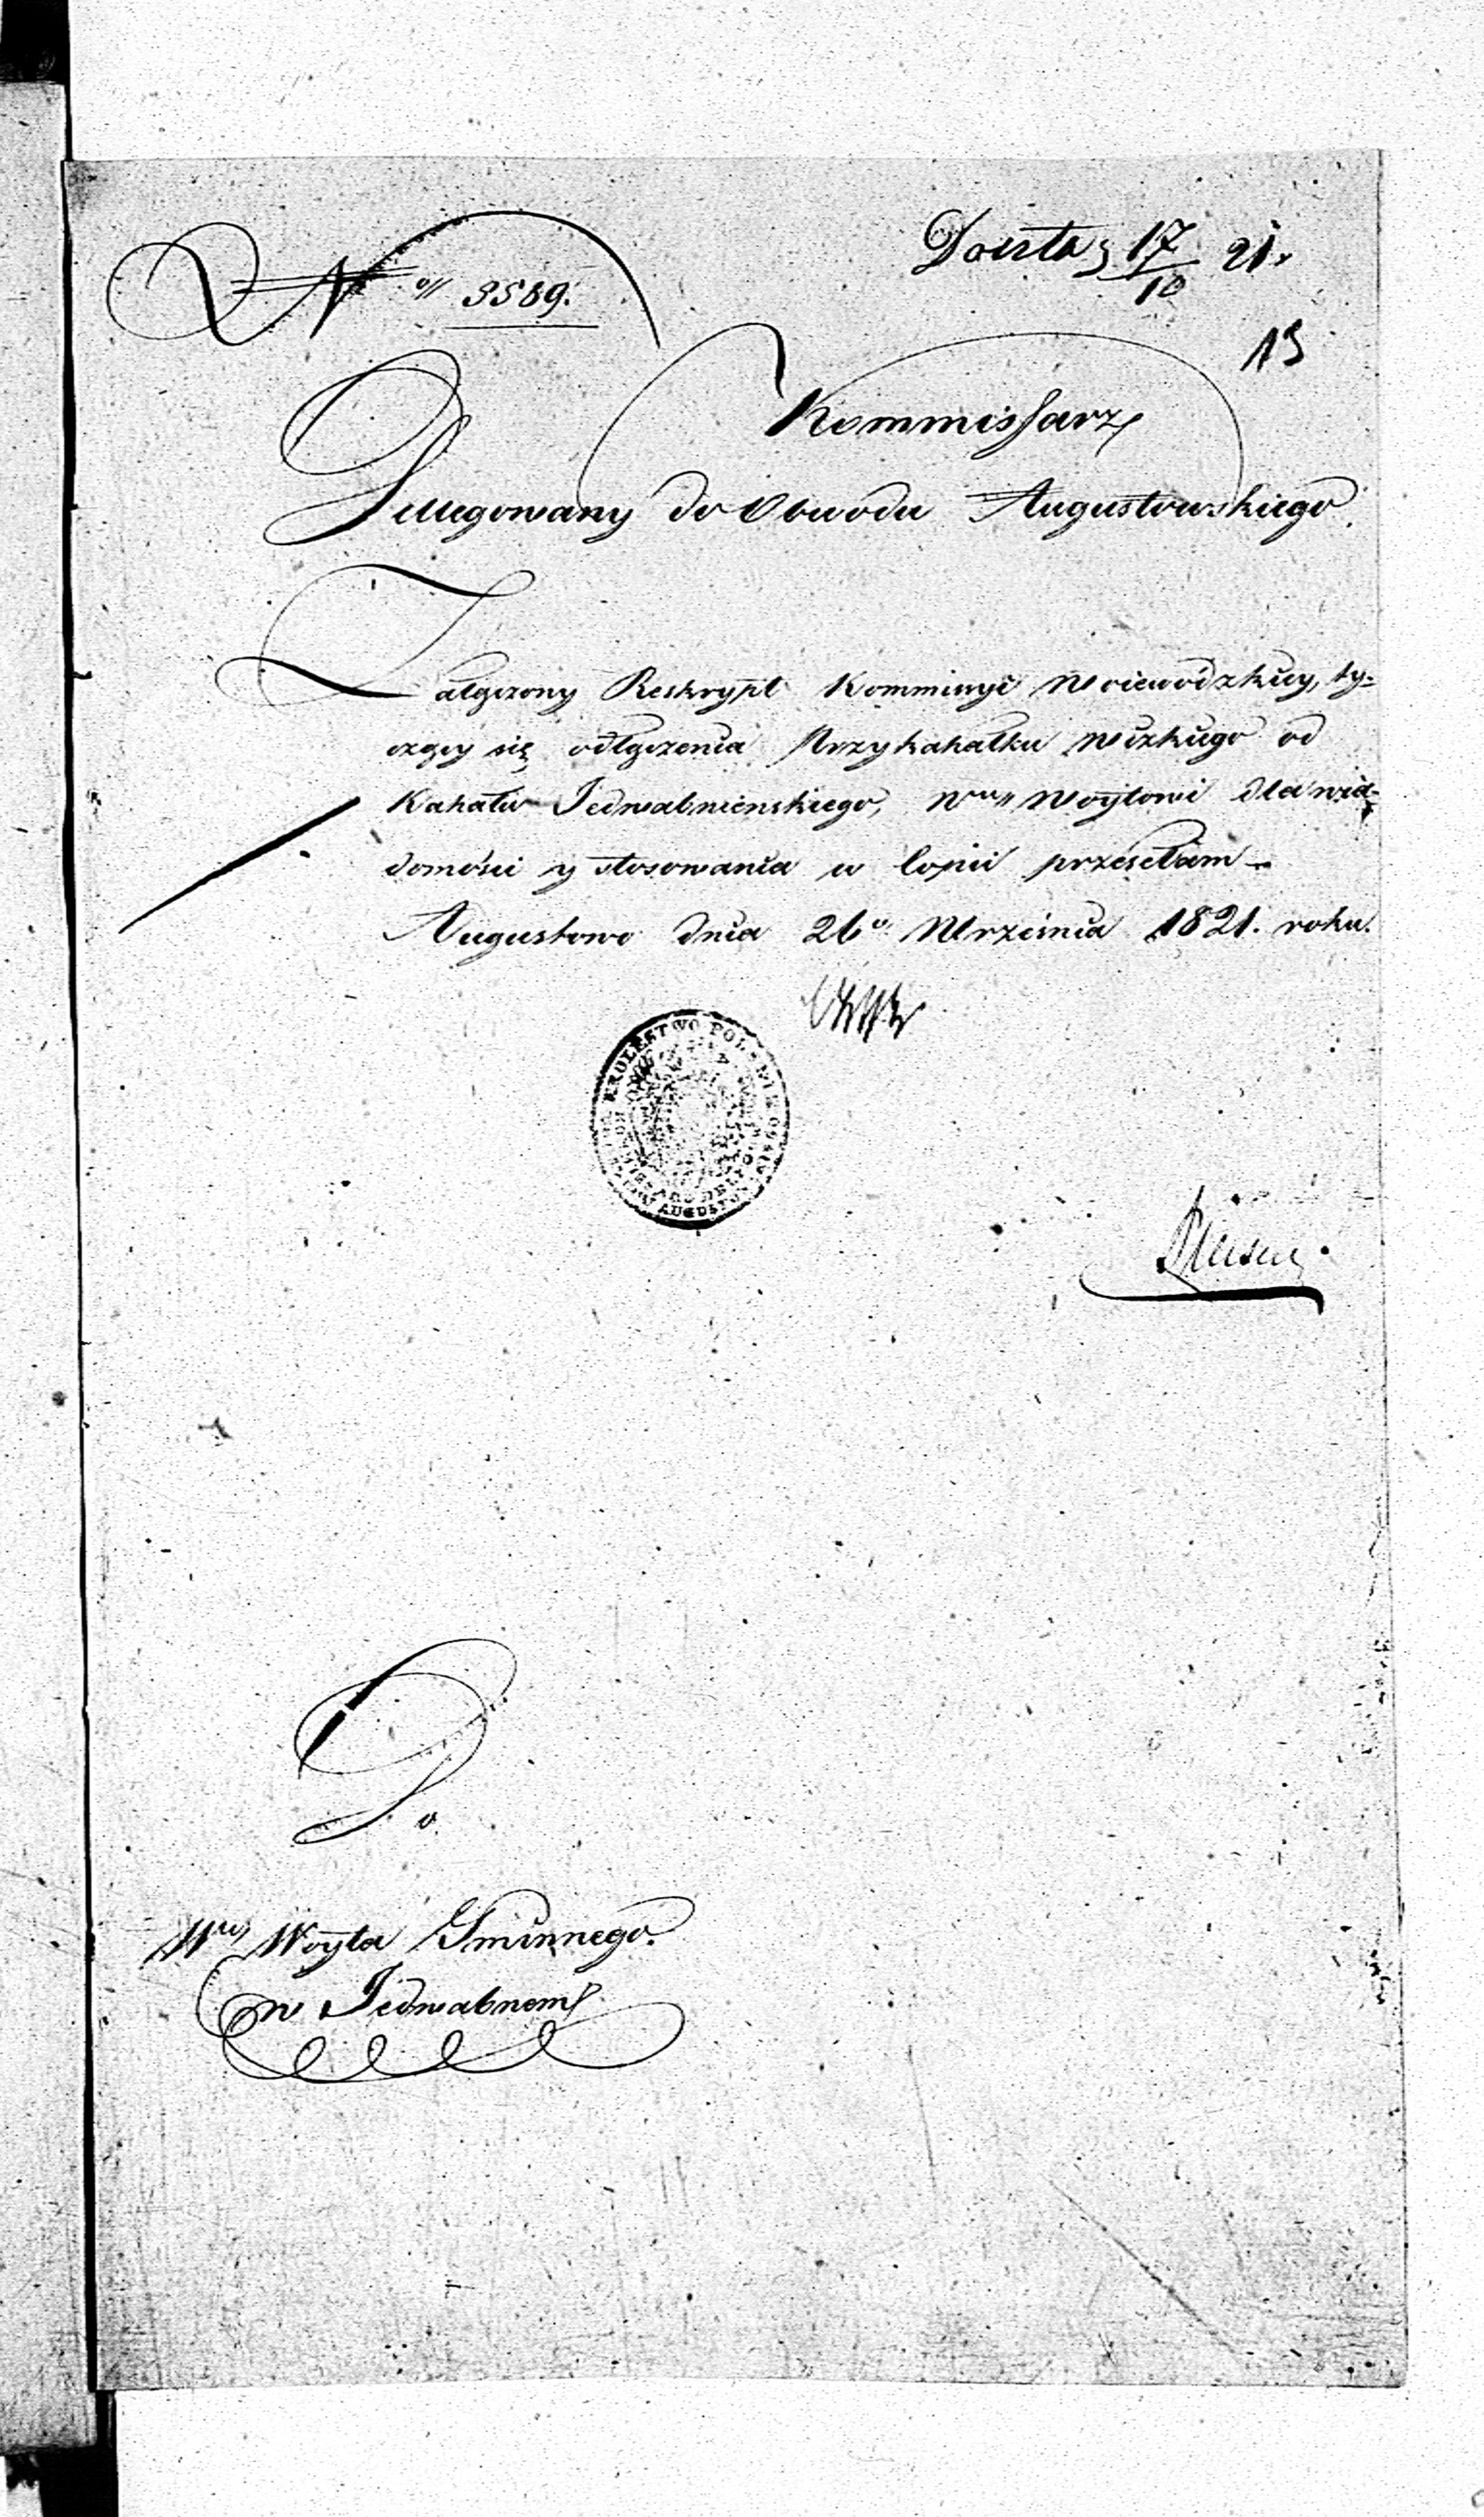 No 3589.
Doszła 17/10 21.
13
Kommissarz
Delegowany do Obwodu Augustowskiego.
Załączony Reskrypt Kommissyi Woiewódzkiey, ty=
czący się odłączenia Przykahałku Wizkiego od
Kahału Jedwabnieńskiego, Wmu Woytowi dla wia=
domości y stosowania w kopii przesełam
Augustowo dnia 26o Września 1821. roku.
KRÓLESTWO POLSKIE
Do
Wo Woyta Gminnego.
w Jedwabnem